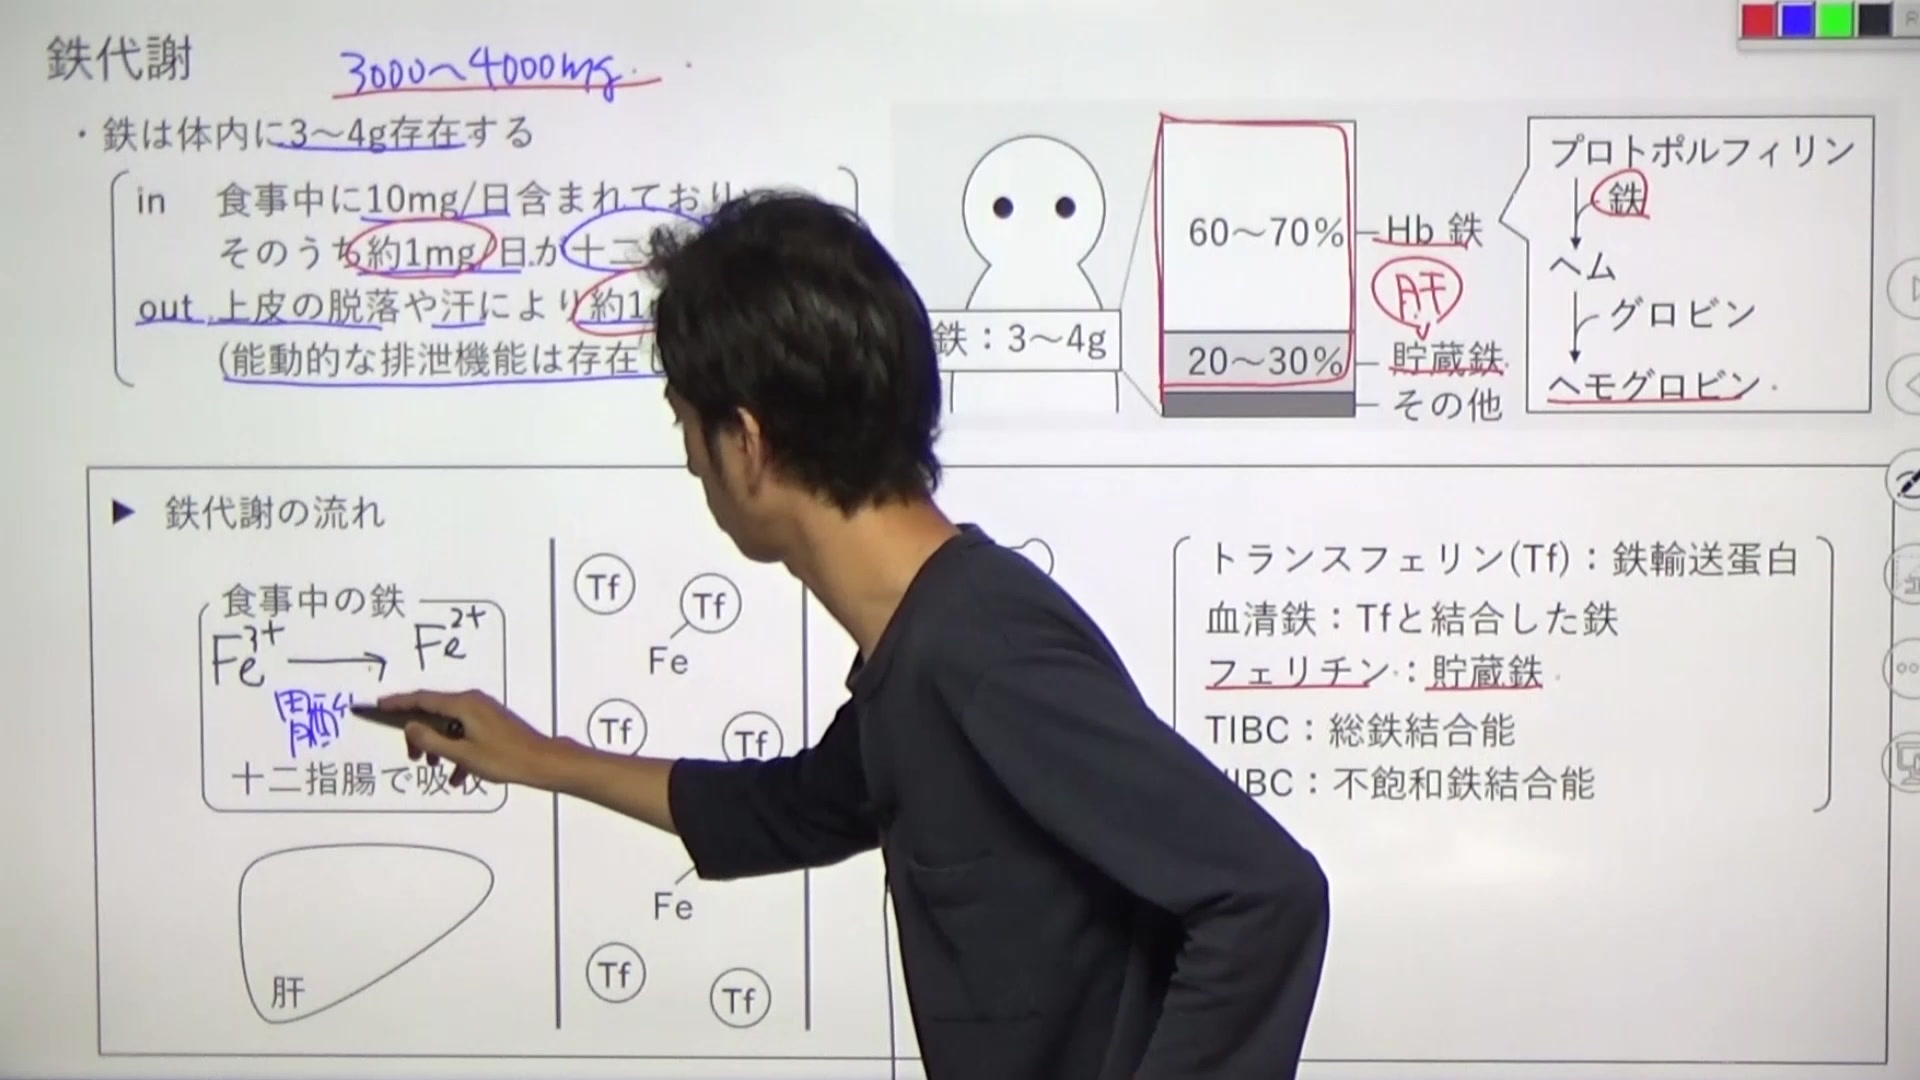 鉄代謝
3000〜4000mg
・鉄は体内に3〜4g存在する
in 食事中に10mg/日含まれており
そのうち約1mg/日が十二
out 上皮の脱落や汗により約1
(能動的な排泄機能は存在
鉄：3〜4g
60〜70%
Hb 鉄
肝
20〜30%
貯蔵鉄
その他
プロトポルフィリン
鉄
ヘム
グロビン
ヘモグロビン
▶ 鉄代謝の流れ
食事中の鉄
Fe3+ → Fe2+
胃
十二指腸で吸収
肝
Tf
Tf
Fe
Tf
Tf
Fe
Tf
Tf
トランスフェリン(Tf)：鉄輸送蛋白
血清鉄：Tfと結合した鉄
フェリチン：貯蔵鉄
TIBC：総鉄結合能
IBC：不飽和鉄結合能